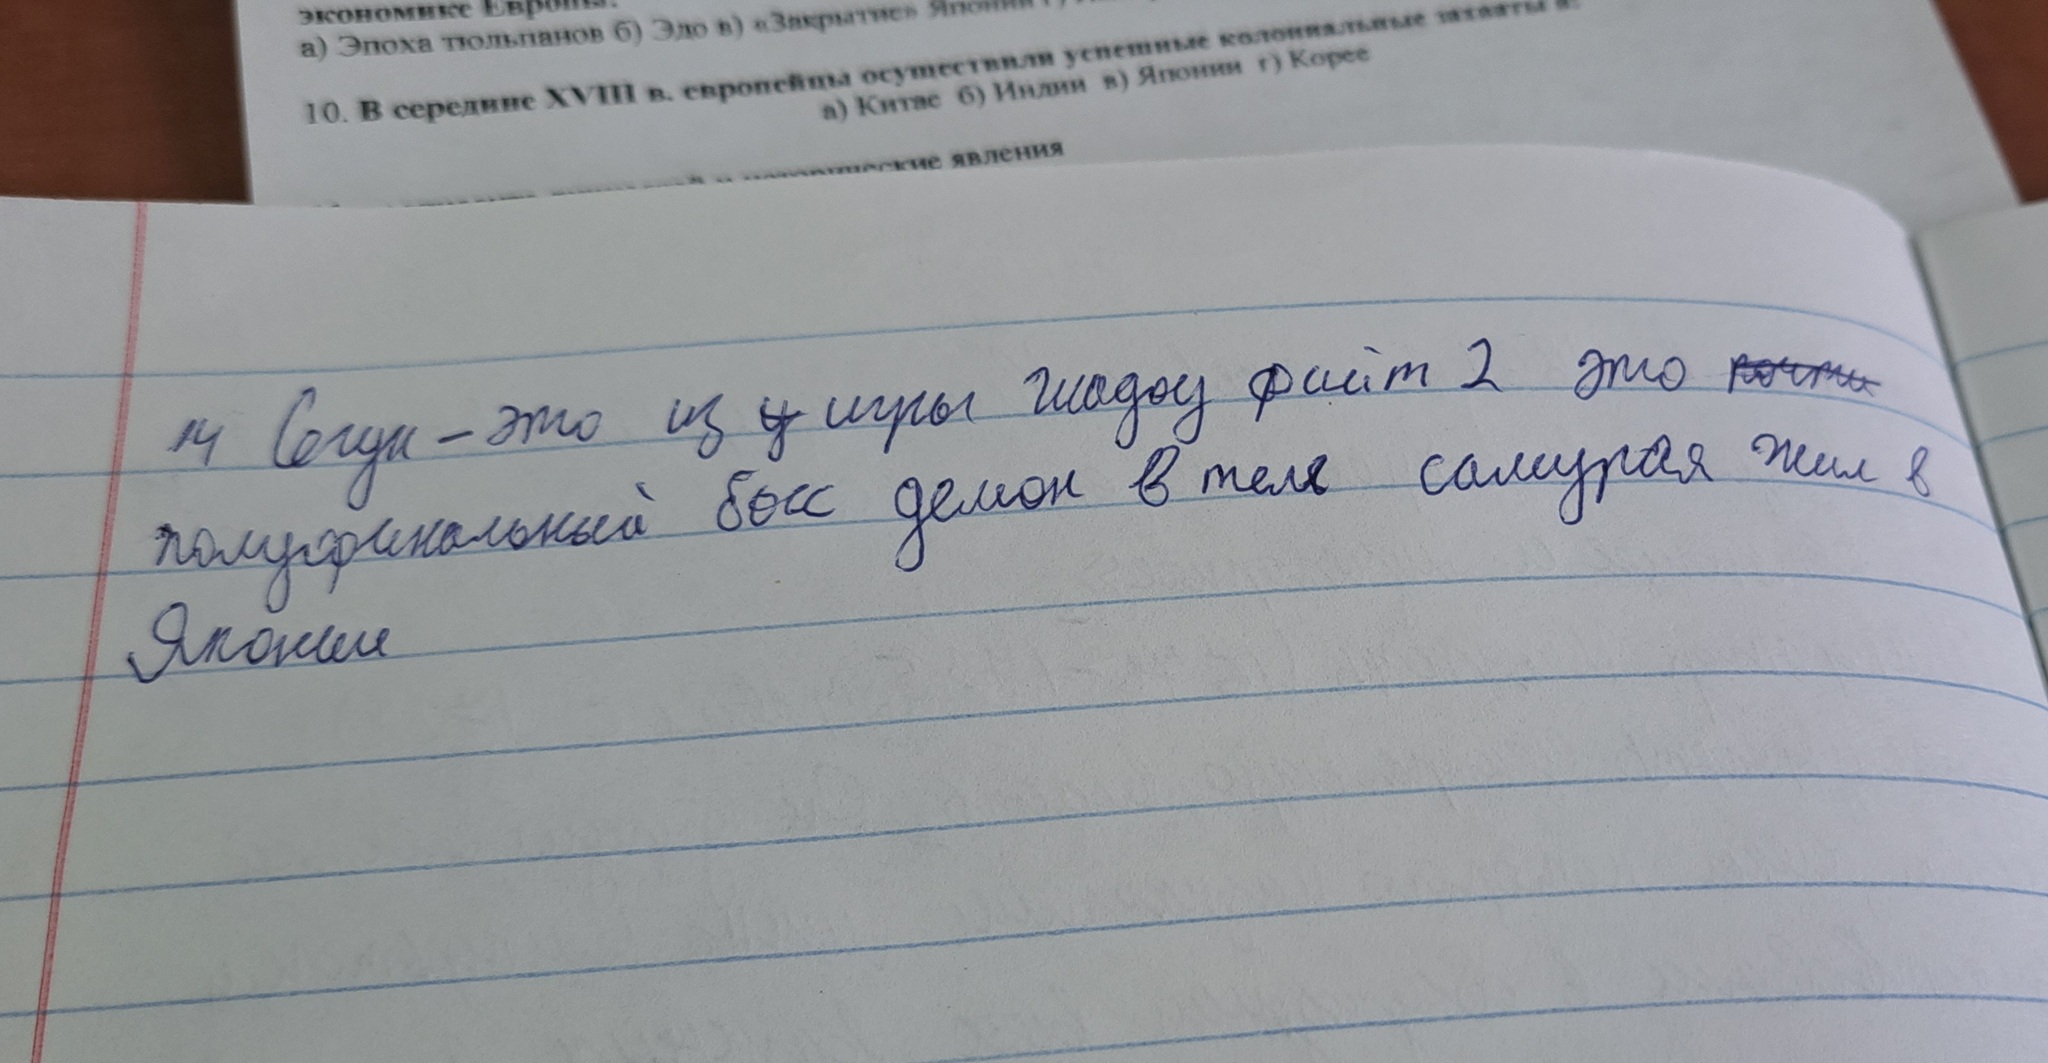 экономике Европы.
а) Эпоха тюльпанов б) Эдо в) «Закрытие» Японии
10. В середине XVIII в. европейцы осуществили успешные колониальные захваты в:
а) Китае б) Индии в) Японии г) Корее
исторические явления
14 Сегун - это из игры Шадоу файт 2 это почти
полуфинальный босс демон в теле самурая жил в
Японии